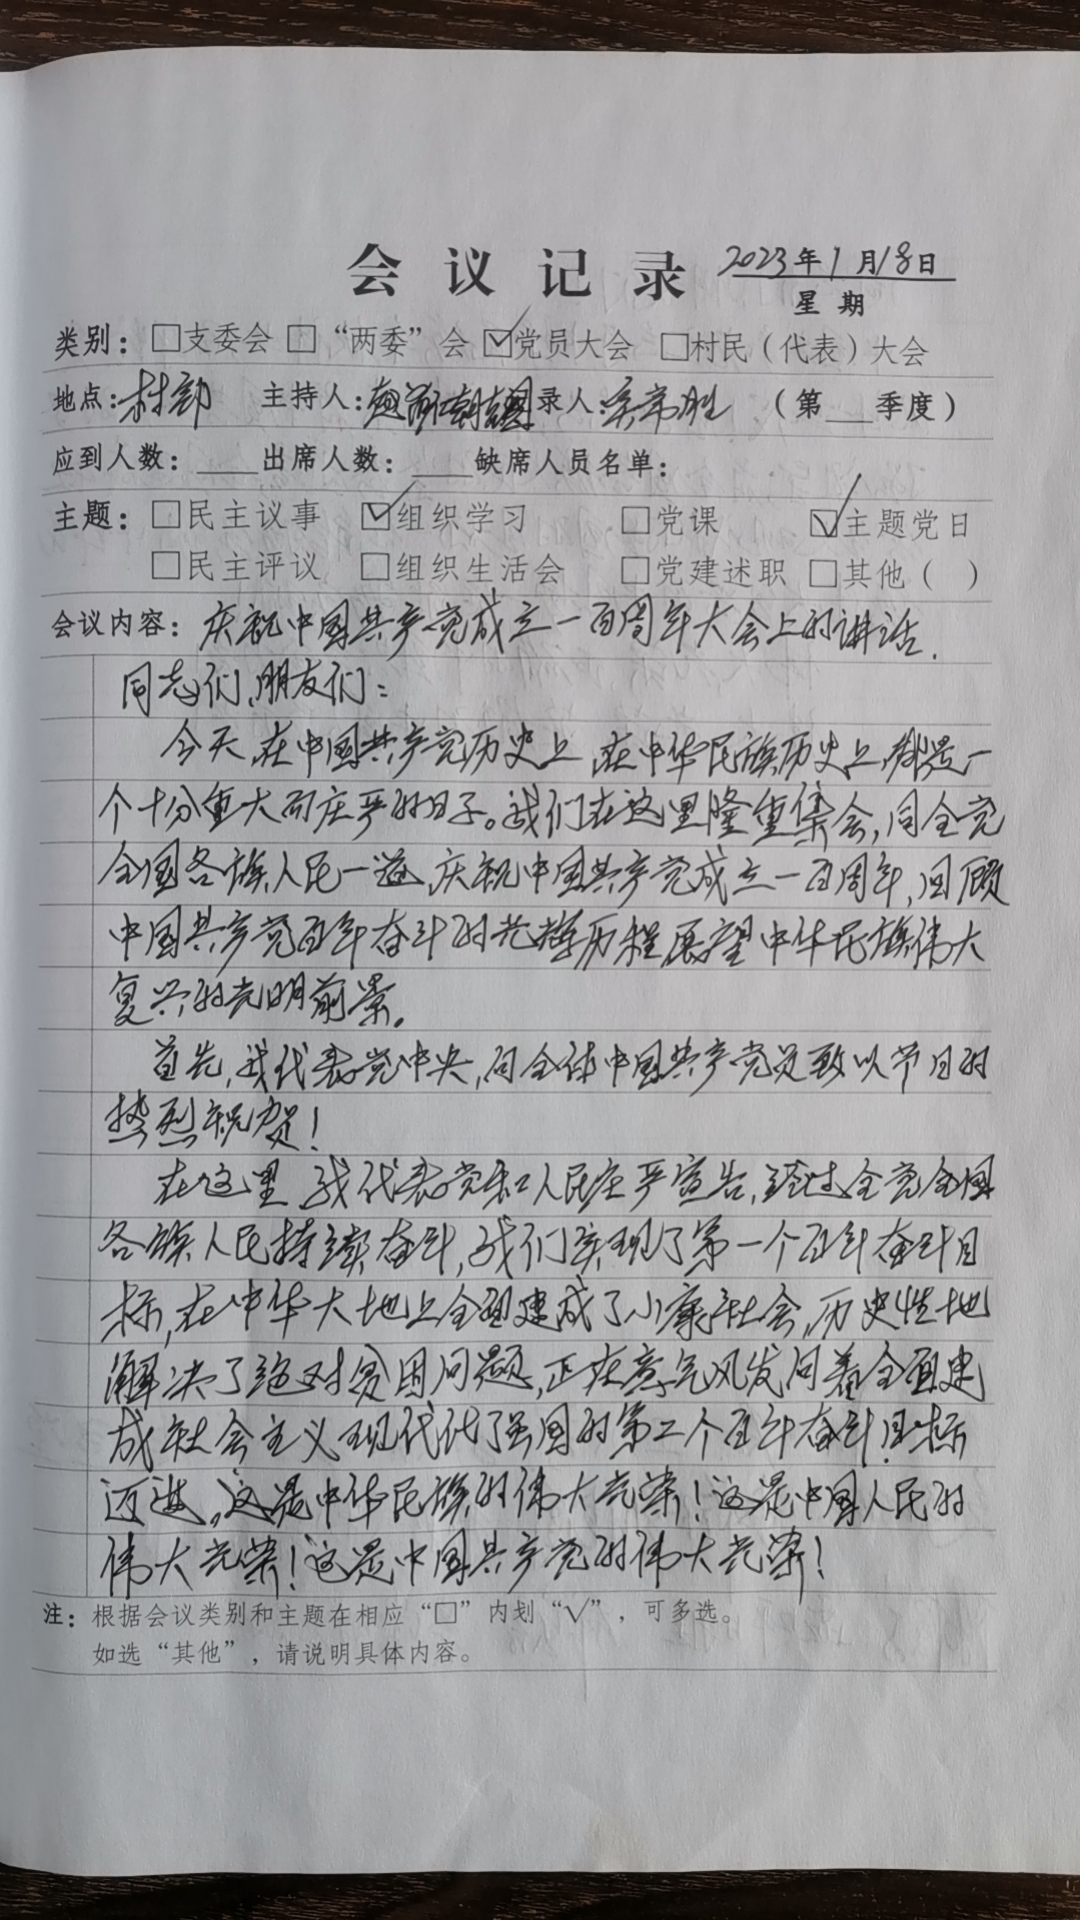 会议记录 2023年1月18日
星期
类别：□支委会 □“两委”会 ☑党员大会 □村民（代表）大会
地点：村部 主持人： 录人： （第___季度）
应到人数：____出席人数：____缺席人员名单：
主题：□民主议事 ☑组织学习 □党课 ☑主题党日
□民主评议 □组织生活会 □党建述职 □其他（ ）
会议内容：庆祝中国共产党成立一百周年大会上的讲话.
同志们、朋友们：
今天，在中国共产党历史上，在中华民族历史上，都是一
个十分重大而庄严的日子。我们在这里隆重集会，同全党
全国各族人民一道，庆祝中国共产党成立一百周年，回顾
中国共产党百年奋斗的光辉历程展望中华民族伟大
复兴的光明前景。
首先，我代表党中央，向全体中国共产党员致以节日的
热烈祝贺！
在这里 我代表党和人民庄严宣告，经过全党全国
各族人民持续奋斗，我们实现了第一个百年奋斗目
标，在中华大地上全面建成了小康社会，历史性地
解决了绝对贫困问题，正在意气风发向着全面建
成社会主义现代代了强国的第二个百年奋斗目标
迈进，这是中华民族的伟大光荣！这是中国人民的
伟大光荣！这是中国共产党的伟大光荣！
注：根据会议类别和主题在相应“□”内划“√”，可多选。
如选“其他”，请说明具体内容。